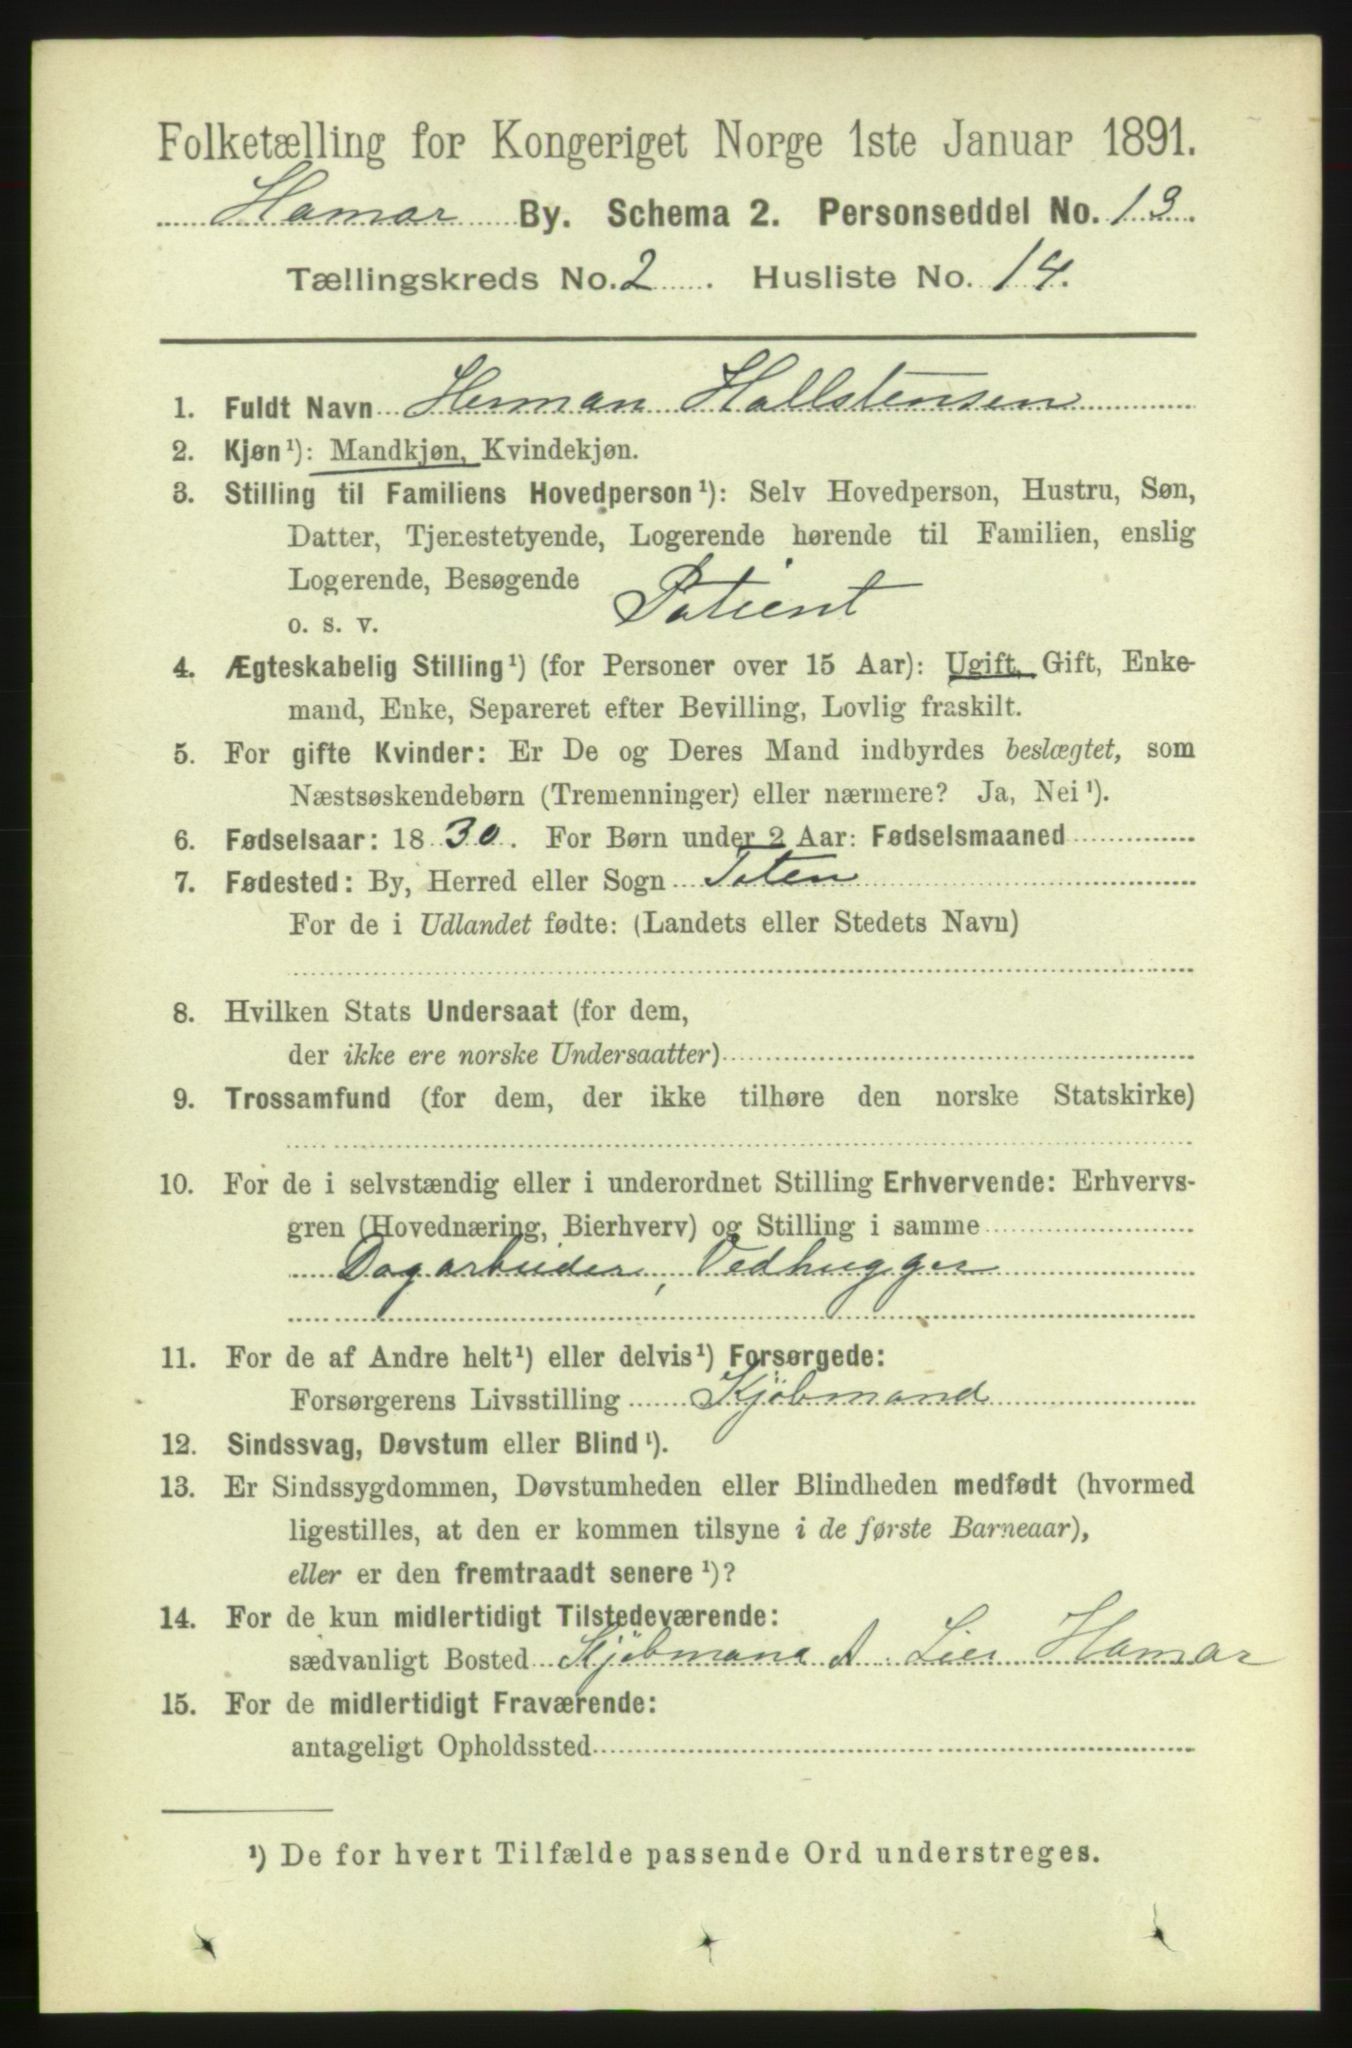 Folketælling for Kongeriget Norge 1ste Januar 1891.
Hamar By. Schema 2. Personseddel No. 13.
Tællingskreds No. 2. Husliste No. 14.
1. Fuldt Navn Herman Hallstensen
2. Kjøn¹): Mandkjøn, Kvindekjøn.
3. Stilling til Familiens Hovedperson¹): Selv Hovedperson, Hustru, Søn,
Datter, Tjenestetyende, Logerende hørende til Familien, enslig
Logerende, Besøgende
o. s. v. Patient
4. Ægteskabelig Stilling¹) (for Personer over 15 Aar): Ugift, Gift, Enke-
mand, Enke, Separeret efter Bevilling, Lovlig fraskilt.
5. For gifte Kvinder: Er De og Deres Mand indbyrdes beslægtet, som
Næstsøskendebørn (Tremenninger) eller nærmere? Ja, Nei¹).
6. Fødselsaar: 1830. For Børn under 2 Aar: Fødselsmaaned
7. Fødested: By, Herred eller Sogn Toten
For de i Udlandet fødte: (Landets eller Stedets Navn)
8. Hvilken Stats Undersaat (for dem,
der ikke ere norske Undersaatter)
9. Trossamfund (for dem, der ikke tilhøre den norske Statskirke)
10. For de i selvstændig eller i underordnet Stilling Erhvervende: Erhvervs-
gren (Hovednæring, Bierhverv) og Stilling i samme
Dagarbeider, Vedhugger
11. For de af Andre helt¹) eller delvis¹) Forsørgede:
Forsørgerens Livsstilling Kjöbmand
12. Sindssvag, Døvstum eller Blind¹).
13. Er Sindssygdommen, Døvstumheden eller Blindheden medfødt (hvormed
ligestilles, at den er kommen tilsyne i de første Barneaar),
eller er den fremtraadt senere¹)?
14. For de kun midlertidigt Tilstedeværende:
sædvanligt Bosted Kjöbmand A. Lier Hamar
15. For de midlertidigt Fraværende:
antageligt Opholdssted
¹) De for hvert Tilfælde passende Ord understreges.